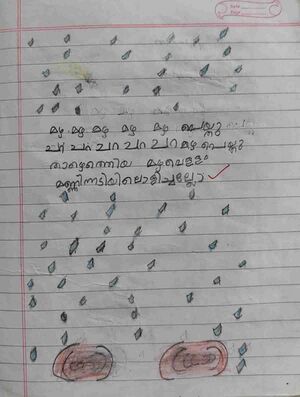 മഴ മഴ മഴ മഴ മഴ പെയ്തു
ചറ ചറ ചറ ചറ ചറ മഴ പെയ്തു
താഴെത്തെത്തിയ മഴവെള്ളം
മണ്ണിന്നടിയിലൊളിച്ചല്ലോ